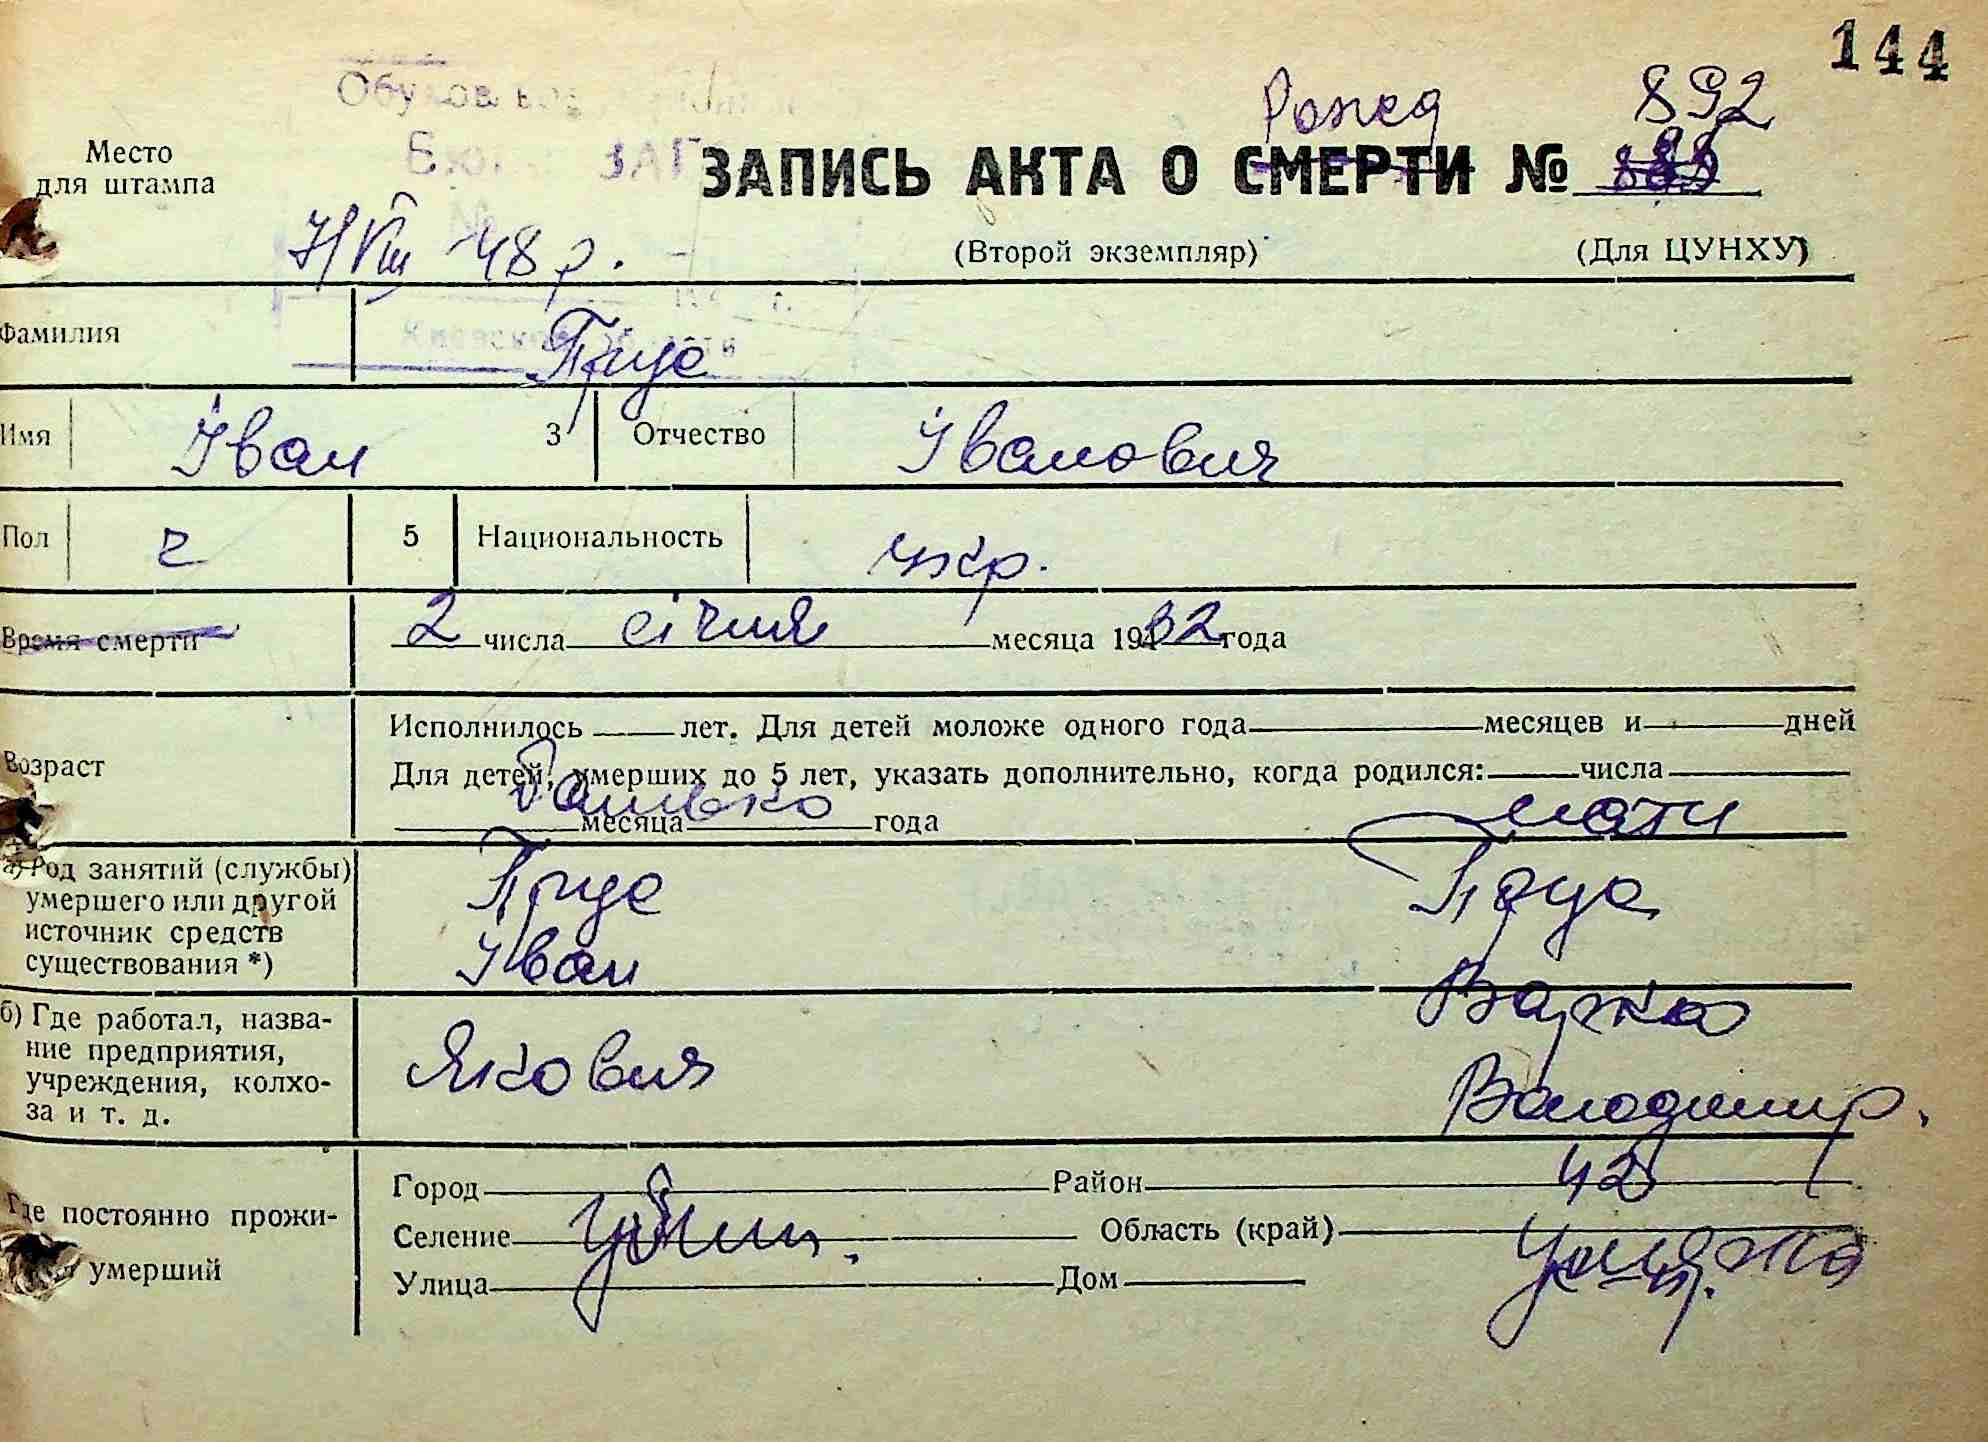 144
Рожд 892
Место
для штампа
ЗАПИСЬ АКТА О СМЕРТИ №
VIII 48 р.
(Второй экземпляр) (Для ЦУНХУ)
Фамилия Прус
Имя Іван 3 Отчество Іванович
Пол ч 5 Национальность укр.
Время смерти 2 числа січня месяца 1932 года
Исполнилось лет. Для детей моложе одного года месяцев и дней
Возраст Для детей, умерших до 5 лет, указать дополнительно, когда родился: числа
месяца года
Батько мати
а) Род занятий (службы)
умершего или другой
источник средств
существования *)
Прус Прус
Іван Варка
б) Где работал, назва-
ние предприятия,
учреждения, колхо-
за и т. д.
Якович Володимир.
42
Где постоянно прожи-
умерший
Город Район
Селение Область (край)
Улица Дом